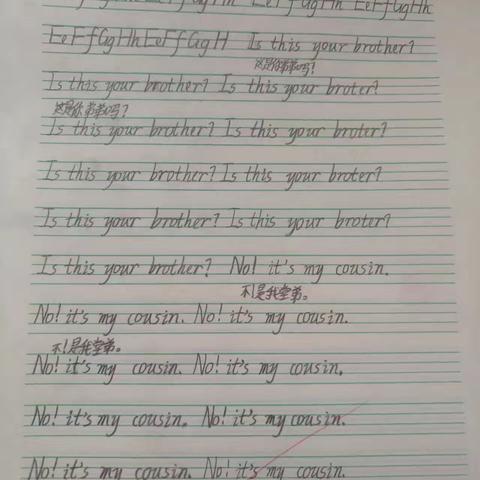 EeFfGgHhEeFfGgH Is this your brother?
这是你弟弟吗?
Is this your brother? Is this your broter?
这是你弟弟吗?
Is this your brother? Is this your broter?
Is this your brother? Is this your broter?
Is this your brother? Is this your broter?
Is this your brother? No! it's my cousin.
不!是我堂弟。
No! it's my cousin. No! it's my cousin.
不!是我堂弟。
No! it's my cousin. No! it's my cousin.
No! it's my cousin. No! it's my cousin.
No! it's my cousin. No! it's my cousin.